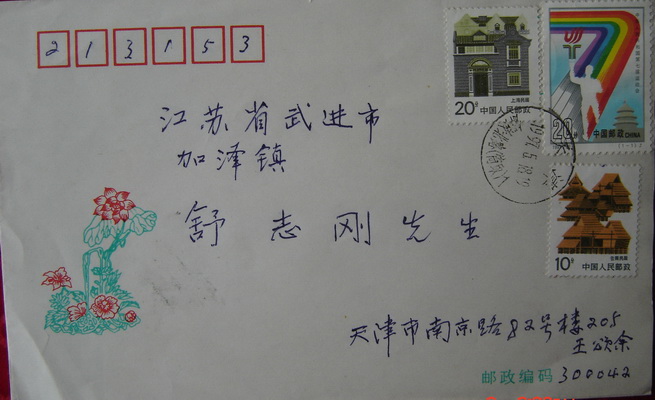 213153
江苏省武进市
加泽镇
舒志刚先生
上海民居
20分
中国人民邮政
20分
中国邮政 CHINA
台湾民居
10分
中国人民邮政
天津市南京路82号楼205
王颂余
邮政编码 300042